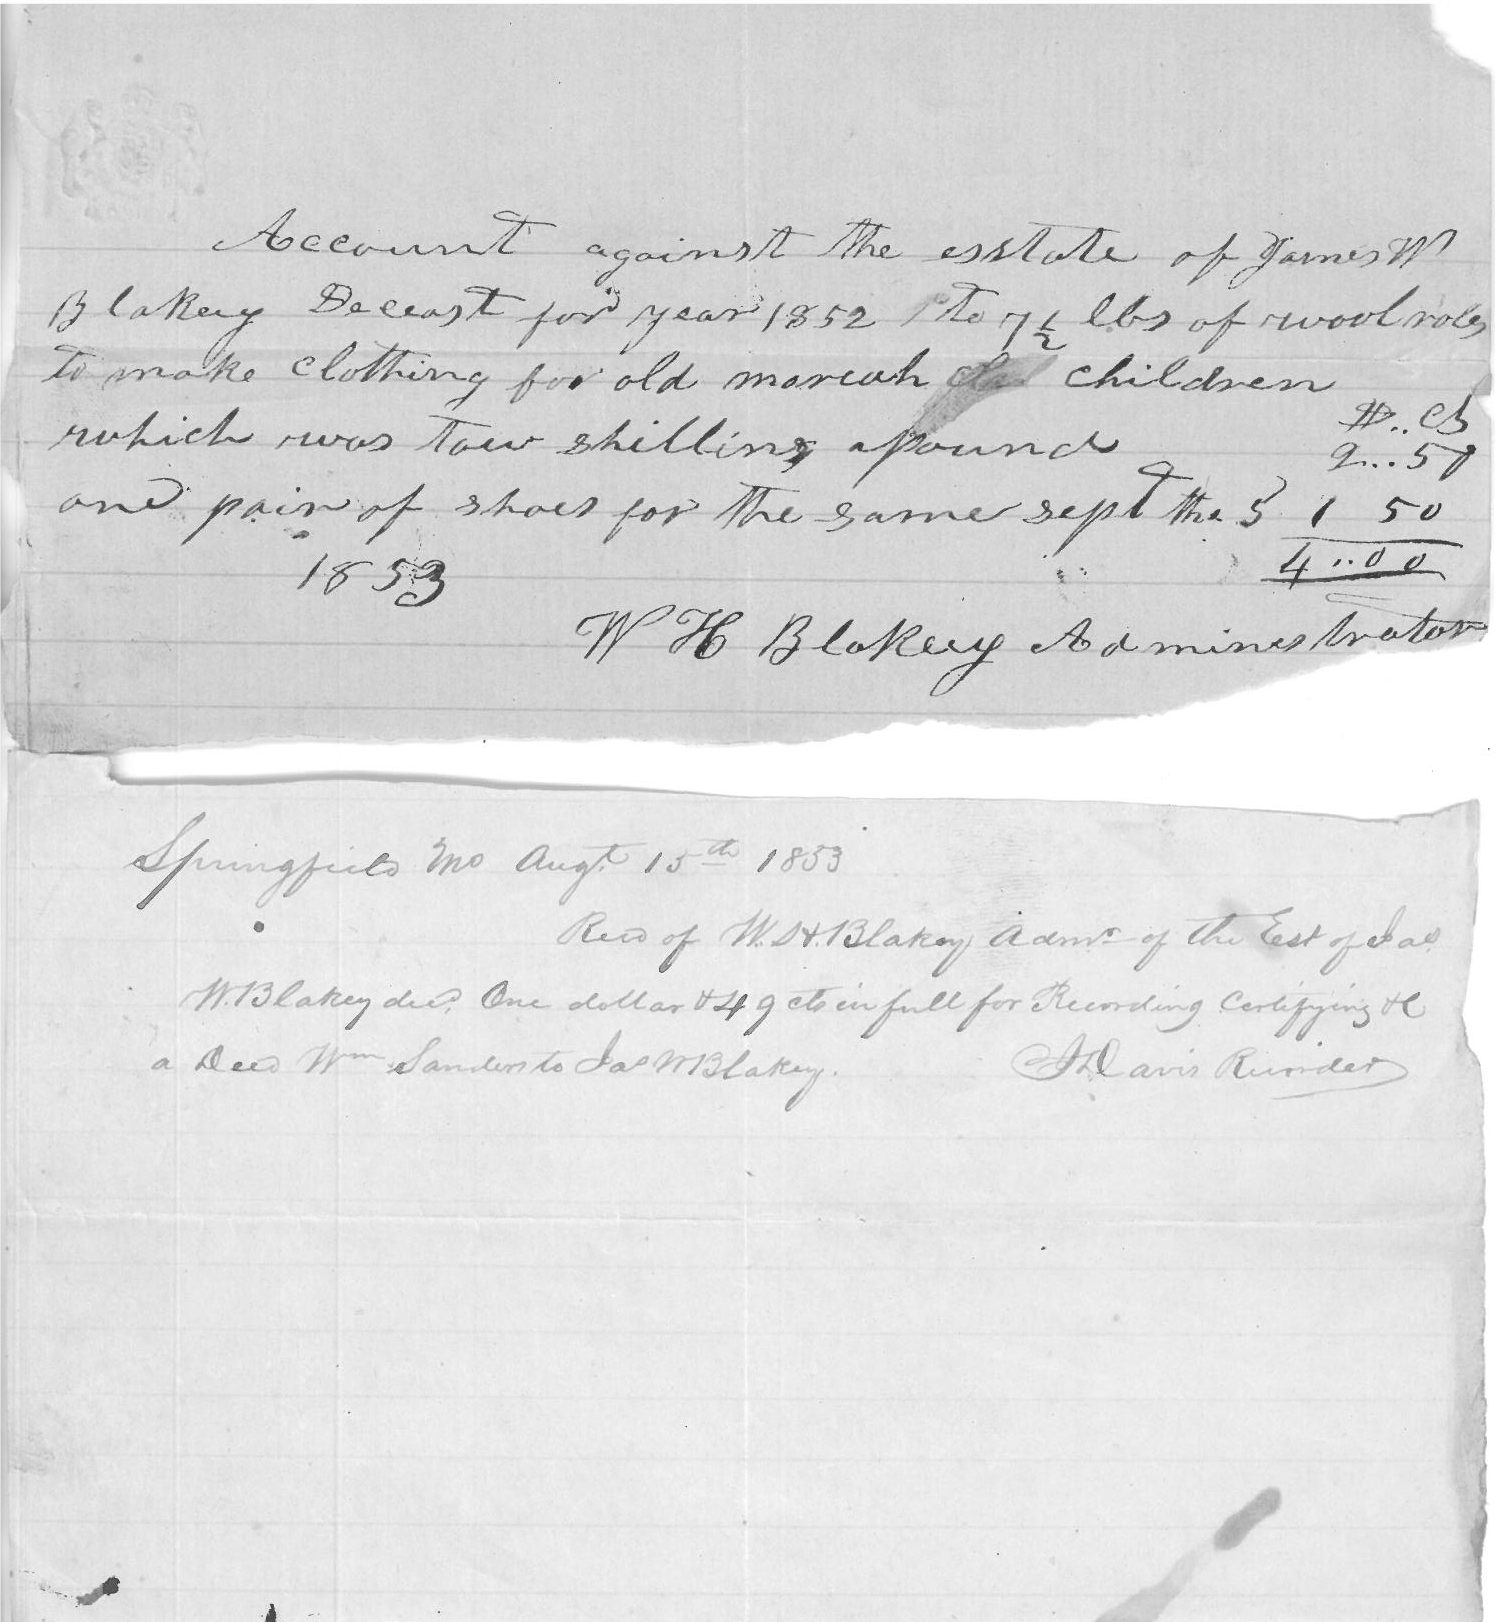 Account against the esstate of James W
Blakey Deceast for year 1852 to 7 1/2 lbs of wool roles
to make clothing for old mareah children
which was tow shilling apound
$.. cts
2...50
one pair of shoes for the same sept the 5 1 50
1853
4..00
W H Blakey Administrator
Springfield Mo Augt. 15th 1853
Recd of W. H. Blakey Admr of the Est of Jas
W. Blakey decd. One dollar & 49 cts in full for Recording Certifying &c
a Deed Wm Sanders to Jas W Blakey. Davis Recorder